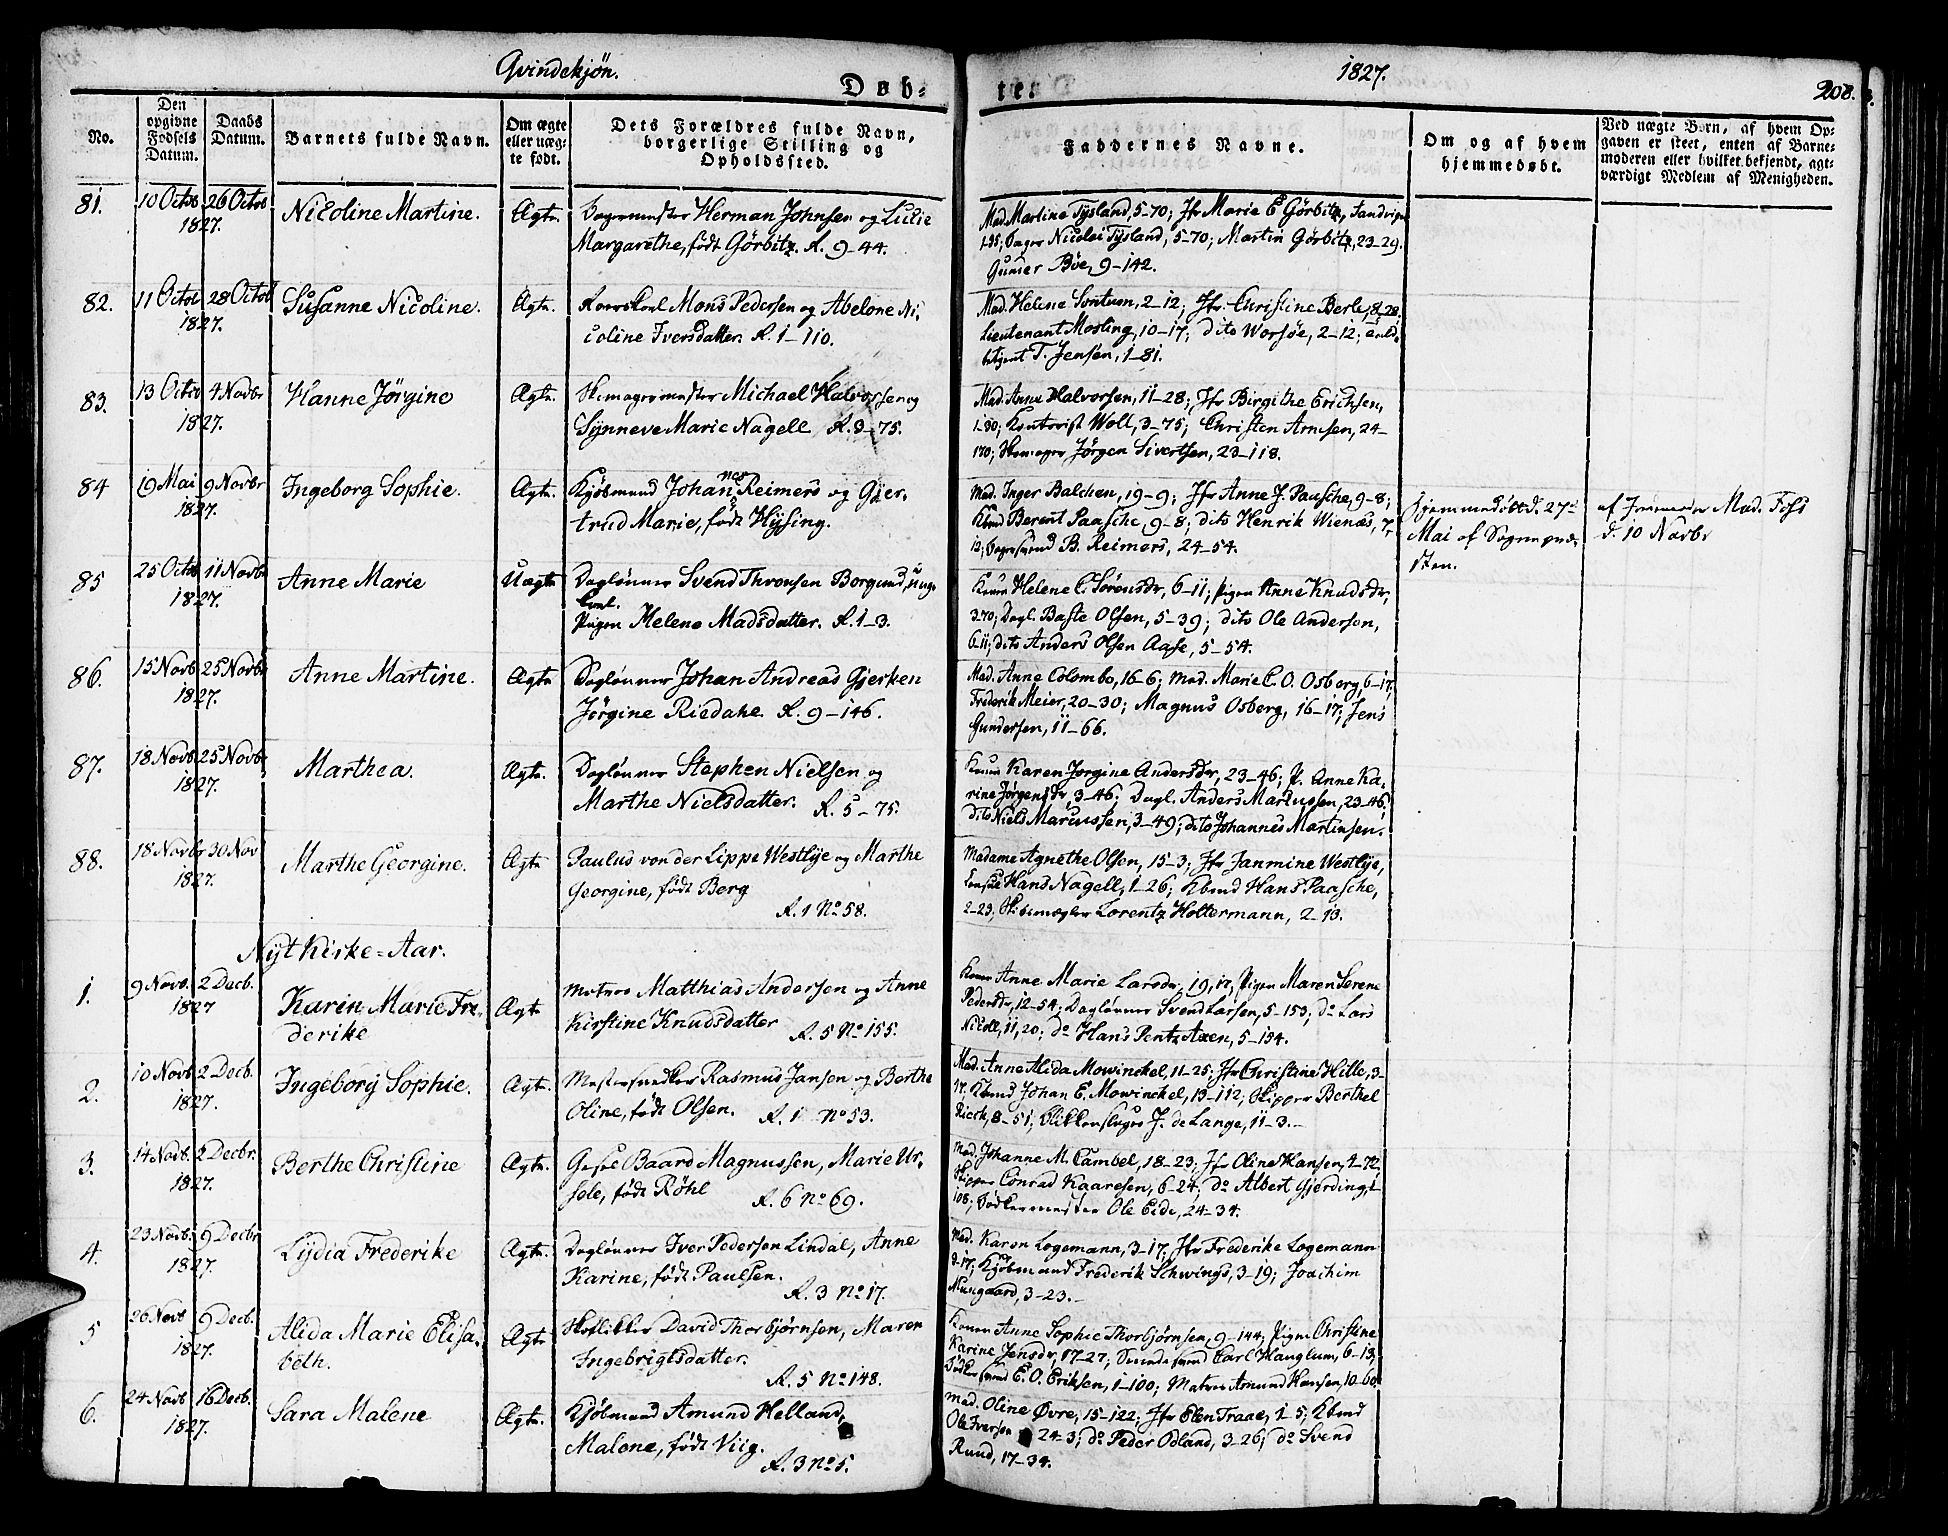 Qvindekjøn.
Døb-
No.
Den opgivne Fødsels Datum.
Daabs Datum.
Barnets fulde Navn.
Om ægte eller uægte født.
Dets Forældres fulde Navn, borgerlige Stilling og Opholdssted.
81.
10 Octob 1827.
26 Octob
Nicoline Martine.
Ægte.
Herman Johnsen og Lucie
Margarethe, født Görbitz. R. 9-44.
82.
11 Octob 1827.
28 Octob
Susanne Nicoline.
Ægte.
Mons Pedersen og Abelone Ni-
coline Iversdatter. R. 1-110.
83.
13 Octob 1827.
4 Novbr
Hanne Jørgine
Ægte.
Skomagermester Michael Halvorsen og
Synneve Marie Nagell R. 3-75.
84
19 Mai 1827.
9 Novbr
Ingeborg Sophie.
Ægte.
Kjøbmand Johannes Reimers og Gjer-
trud Marie, født Hysing.
85
25 Octob 1827.
11 Novbr
Anne Marie
Uægte
Daglønner Svend Thronsen Borgund, ung-
karl.
Pigen Helene Madsdatter. R. 1-3.
86.
15 Novb 1827.
25 Novbr
Anne Martine.
Ægte
Daglønner Johan Andreas Gjerken
Jørgine Riedahe. R. 9-146.
87.
18 Novb. 1827.
25 Novbr
Marthea.
Ægte.
Daglønner Stephen Nielsen og
Marthe Nielsdatter. R. 5-75.
88.
18 Novbr 1827.
30 Nov
Marthe Georgine.
Ægte
Paulus von der Lippe Westlye og Marthe
Georgine, født Berg
R. 1 No 58.
Nyt Kirke-Aar.
1.
9 Novb. 1827
2 Decb.
Karin Marie Fre-
derike
Ægte
Matros Matthias Andersen og Anne
Kirstine Knudsdatter R. 5 No 155.
2.
10 Novb 1827.
2 Decb.
Ingeborg Sophie.
Ægte.
Mestersnedker Rasmus Jansen og Berthe
Oline, født Olsen. R. 1 No 53.
3.
14 Novb. 1827.
2 Decbr.
Berthe Christine
Ægte.
Baard Magnussen, Marie Ur-
sole, født Röhl R. 6 No 69.
4.
23 Novb. 1827.
9 Decbr
Lydia Frederike
Ægte.
Daglønner Iver Pedersen Lindal, Anne
Karine, født Paulsen.
R. 3 No 17.
5
26 Novb 1827.
9 Decb.
Alida Marie Elisa-
beth.
Ægte
Skoflikker David Thorbjørnsen, Maren
Ingebrigtsdatter.
R. 5 No 148.
6.
24 Novb 1827.
16 Decb.
Sara Malene
Ægte.
Kjøbmand Amund Helland,
Malene, født Viig.
R. 3 No 5.
1827.
208.
te:
Faddernes Navne.
Om og af hvem hjemmedøbt.
Ved uægte Børn, af hvem Op-
gaven er skeet, enten af Barne-
moderen eller hvilket bekjendt, agt-
værdigt Medlem af Menigheden.
Mad. Martine Tysland, 5-70; Jfr Marie C Görbitz, Sandvigen
1-95; Nicolai Tysland, 5-70; Martin Görbitz, 23-29.
Böe, 9-142.
Mad. Helene Sontum, 2-12; Jfr. Christine Berle, 8-28.
Lieutenant Mosling, 10-17; dito Worsöe, 2-12;
T. Jensen, 1-81.
Mad. Anne Halvorsen, 11-28; Jfr Birgithe Erichsen,
1-30; Woll, 3-75; Christen Arnesen, 24-
170; Skomager Jørgen Sivertsen, 23-118.
Mad. Inger Balchen, 19-9; Jfr Anne J. Paasche, 9-8;
Kbmd Berent Paasche, 9-8; dito Henrik Wienæs, 7-
12; B. Reimers, 24-54.
Hjemmedøbt d. 27de
Mai af Sognepræ-
sten.
af Jordemoder Mad. Foss
d. 10 Novbr
Konen Helene C. Sørensdr, 6-11; Pigen Anne Knudsdr,
3-70; Dagl. Baste Olsen, 5-39; dito Ole Andersen,
6-11; dito Anders Olsen Aase, 5-54.
Mad. Anne Colombo, 16-6; Mad. Marie C. O. Osberg, 6-17;
Frederik Meier, 20-30; Magnus Osberg, 16-17; Jens
Gundersen, 11-66.
Konen Karen Jørgine Andersdr, 23-46; P. Anne Ka-
rine Jørgensdr, 3-46; Dagl. Anders Markussen, 23-46;
dito Niels Marcussen, 3-49; dito Johannes Martinsen.
Madame Agnethe Olsen, 15-3; Jfr Janmine Westlye,
Hans Nagell, 1-26; Kbmd Hans Paasche,
2-23, Skibsmægler Lorentz Holtermann, 2-13.
Konen Anne Marie Larsdr, 19,17, Pigen Maren Serene
Pedersdr, 12-54; Daglønner Svend Larsen, 5-153; do Lars
Nicoll, 11,20; do Hans Pentz Axen, 5-154.
Mad. Anne Alida Mowinckel, 11-25; Jfr Christine Hille, 3-
17. Kbmd Johan E. Mowinckel, 13-112; Skipper Berthel
Rieck, 8-51; Blikkenslager J. de Lange, 11-3.-
Mad. Johanne M. Cambel, 18-23; Jfr Oline Hansen, 4-72,
Skipper Conrad Kaaresen, 6-24; do Albert Gjerding, 1-
108; Bødkermester Ole Eide, 24-34.
Mad. Karen Logemann, 3-17; Jfr Frederike Logemann
3-17; Kjøbmand Frederik Schwings, 3-19; Joachim
Nungaard, 3-23.-
Konen Anne Sophie Thorbjørnsen, 9-144; Pigen Christine
Karine Jensdr, 17-27; Carl Hauglum, 6-13;
E. O. Eriksen, 1-100; Matros Amund Hansen, 10-60.
Mad. Oline Øvre, 15-122; Jfr Elen Traae, 1-5; Kbmd
Ole Iversen 24-3; do Peder Odland, 3-26; do Svend
Rund, 17-34.